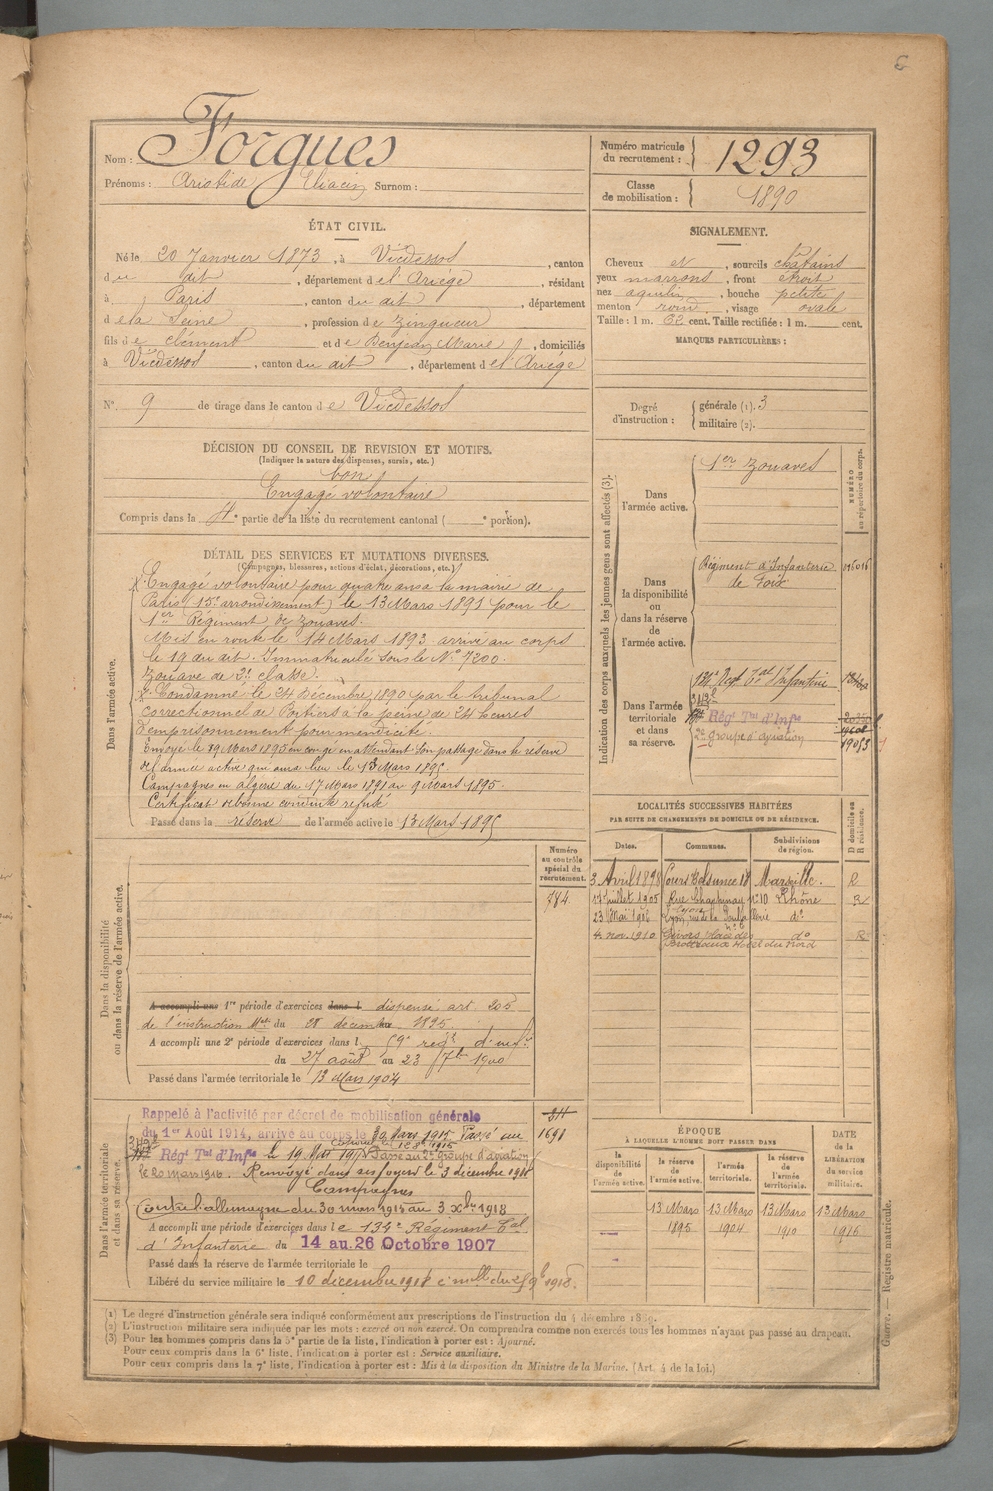 6
Nom : Forgues
Prénoms : Aristide Eliacin Surnom :
Numéro matricule du recrutement : 1293
Classe de mobilisation : 1890
ÉTAT CIVIL.
Né le 20 Janvier 1873, à Vicdessos, canton
du dit, département de l'Ariège, résidant
à Paris, canton du dit, département
de la Seine, profession de Zingueur
fils de Clément et de Benjean Marie, domiciliés
à Vicdessos, canton du dit, département de l'Ariége
N°. 9 de tirage dans le canton de Vicdessos
SIGNALEMENT.
Cheveux et, sourcils châtains
yeux marrons, front étroit
nez aquilin, bouche petite
menton rond, visage ovale
Taille : 1 m. 62 cent. Taille rectifiée : 1 m. cent.
MARQUES PARTICULIÈRES :
Degré d'instruction :
générale (1). 3
militaire (2).
DÉCISION DU CONSEIL DE REVISION ET MOTIFS.
(Indiquer la nature des dispenses, sursis, etc.)
bon
Engagé volontaire
Compris dans la 4e partie de la liste du recrutement cantonal ( e portion).
DÉTAIL DES SERVICES ET MUTATIONS DIVERSES.
(Campagnes, blessures, actions d'éclat, décorations, etc.)
Dans l'armée active.
Engagé volontaire pour quatre ans à la mairie de
Paris (15e arrondissement) le 13 Mars 1891 pour le
1er Régiment de Zouaves.
Mis en route le 14 Mars 1893 arrivé au corps
le 19 du dit. Immatriculé sous le N° 7200.
Zouave de 2e classe.
Condamné le 24 Décembre 1890 par le tribunal
correctionnel de Poitiers à la peine de 24 heures
d'emprisonnement pour mendicité.
Envoyé le 19 Mars 1895 en congé en attendant son passage dans la réserve
de l'armée active qui aura lieu le 13 Mars 1895.
Campagnes en algérie du 17 Mars 1891 au 9 Mars 1895.
Certificat de bonne conduite refusé
Passé dans la réserve de l'armée active le 13 Mars 1895
Indication des corps auxquels les jeunes gens sont affectés (3).
NUMÉRO au répertoire du corps.
Dans l'armée active.
1er Zouaves
Dans la disponibilité ou dans la réserve de l'armée active.
Régiment d'Infanterie
de Foix
Dans l'armée territoriale et dans sa réserve.
134e Régt Tal d'Infanterie
Rég' Tal d'Infie
2e groupe d'aviation
19053
LOCALITÉS SUCCESSIVES HABITÉES
PAR SUITE DE CHANGEMENTS DE DOMICILE OU DE RÉSIDENCE.
Dates. Communes. Subdivisions de région. D domicile ou R résidence.
3 Avril 1898 Cours Belsunce 18 Marseille. R
17 Juillet 1905 Rue Chaponnay n° 10 Rhône R
23 Mai 1906 Lyon, rue de la d°
4 nov. 1910 Givors place des d° R
Brotteaux Hotel du Nord
Numéro au contrôle spécial du recrutement.
784
Dans la disponibilité ou dans la réserve de l'armée active.
A accompli une 1re période d'exercices dans l dispensé art. 205
de l'instruction Mre du 28 décembre 1895.
A accompli une 2e période d'exercices dans l 59e régt d'inf.
du 27 août au 23 7bre 1900
Passé dans l'armée territoriale le 13 Mars 1904
Dans l'armée territoriale et dans sa réserve.
Rappelé à l'activité par décret de mobilisation générale
du 1er Août 1914, arrivé au corps le 30 Mars 1915 Passé au
Rég' Tal d'Infie le 19 1915 Passé au 2e groupe d'aviation
le 20 mars 1916. Renvoyé dans ses foyers le 3 décembre 1918
Campagnes
Contre l'allemagne du 30 mars 1915 au 3 Xbre 1918
A accompli une période d'exercices dans le 134e Régiment Tal
d'Infanterie du 14 au 26 Octobre 1907
Passé dans la réserve de l'armée territoriale le
Libéré du service militaire le 10 décembre 1918
1691
ÉPOQUE
À LAQUELLE L'HOMME DOIT PASSER DANS
la disponibilité de l'armée active.
la réserve de l'armée active.
l'armée territoriale.
la réserve de l'armée territoriale.
DATE de la LIBÉRATION du service militaire.
13 Mars 1895
13 Mars 1904
13 Mars 1910
13 Mars 1916
Guerre. — Registre matricule.
(1) Le degré d'instruction générale sera indiqué conformément aux prescriptions de l'instruction du 4 décembre 1889.
(2) L'instruction militaire sera indiquée par les mots : exercé ou non exercé. On comprendra comme non exercés tous les hommes n'ayant pas passé au drapeau.
(3) Pour les hommes compris dans la 5e partie de la liste, l'indication à porter est : Ajourné.
Pour ceux compris dans la 6e liste, l'indication à porter est : Service auxiliaire.
Pour ceux compris dans la 7e liste, l'indication à porter est : Mis à la disposition du Ministre de la Marine. (Art. 4 de la loi.)